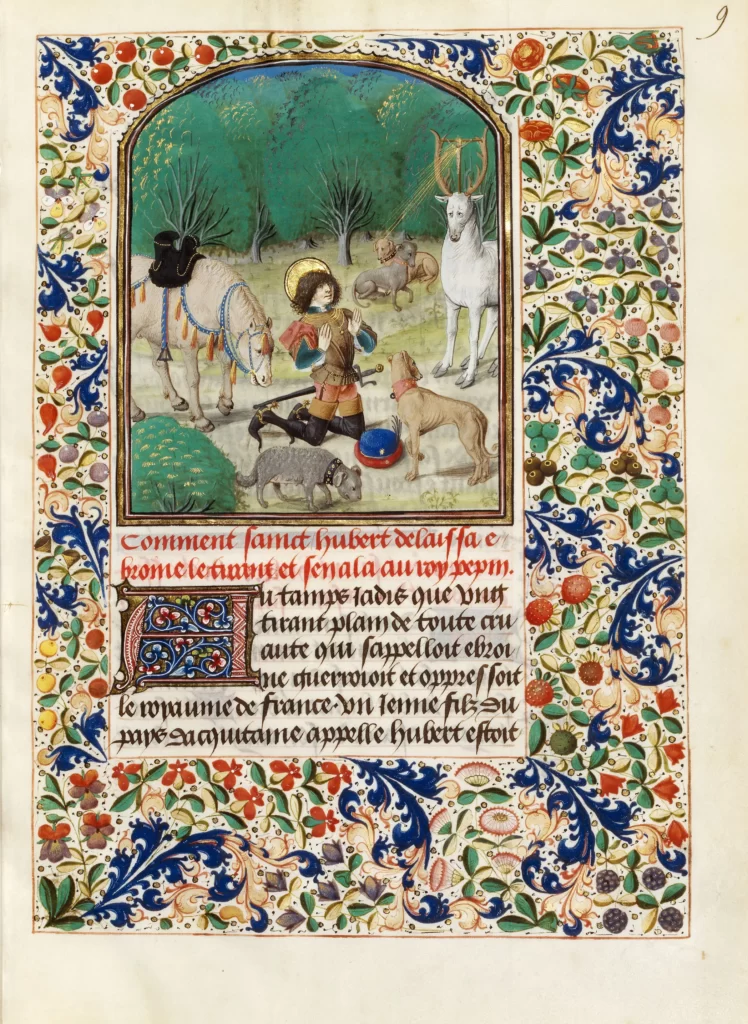 9
Comment sainct hubert delaissa e
broine le tirant et sen ala au roy pepin.
Eu tamps Jadis que vng
tirant plain de toute cru
aute qui sappelloit ebroi
ne guerroioit et oppressoit
le royaume de france. vn Jenne filz du
pays dacquitaine appelle hubert estoit